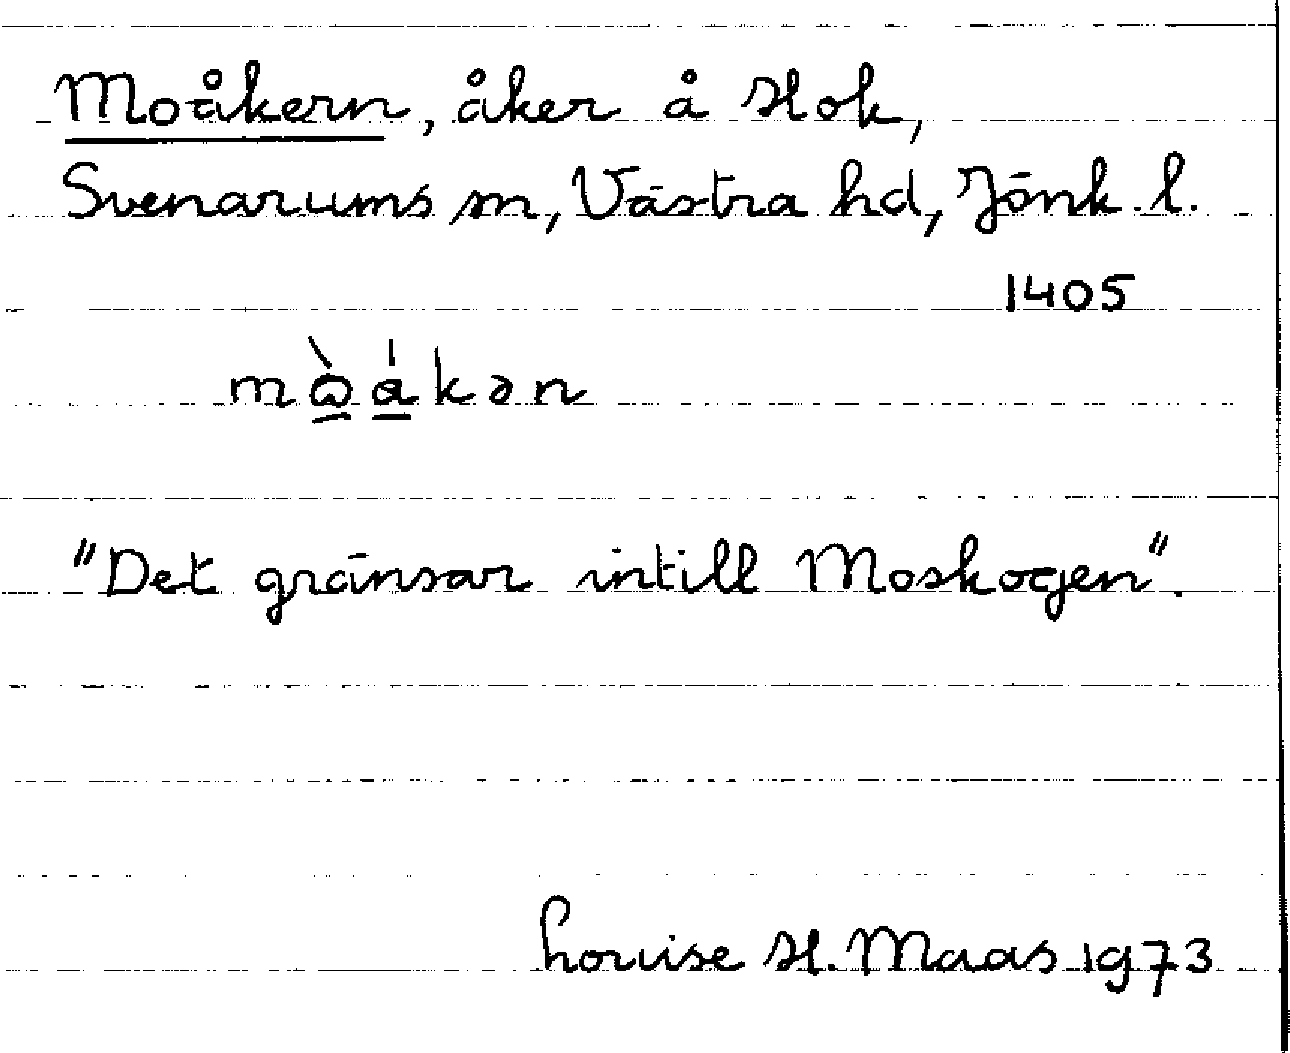 Moåkern, åker å Hok,
Svenarums sn, Västra hd, Jönk. l.
1405
"Det gränsar intill Moskogen".
Louise H. Maas 1973